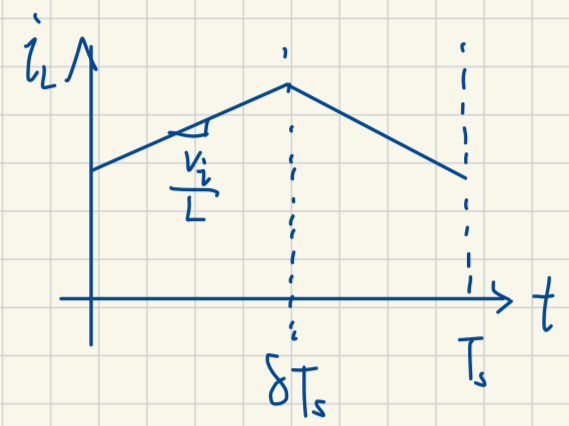 i_L
V_i
L
t
δT_s
T_s